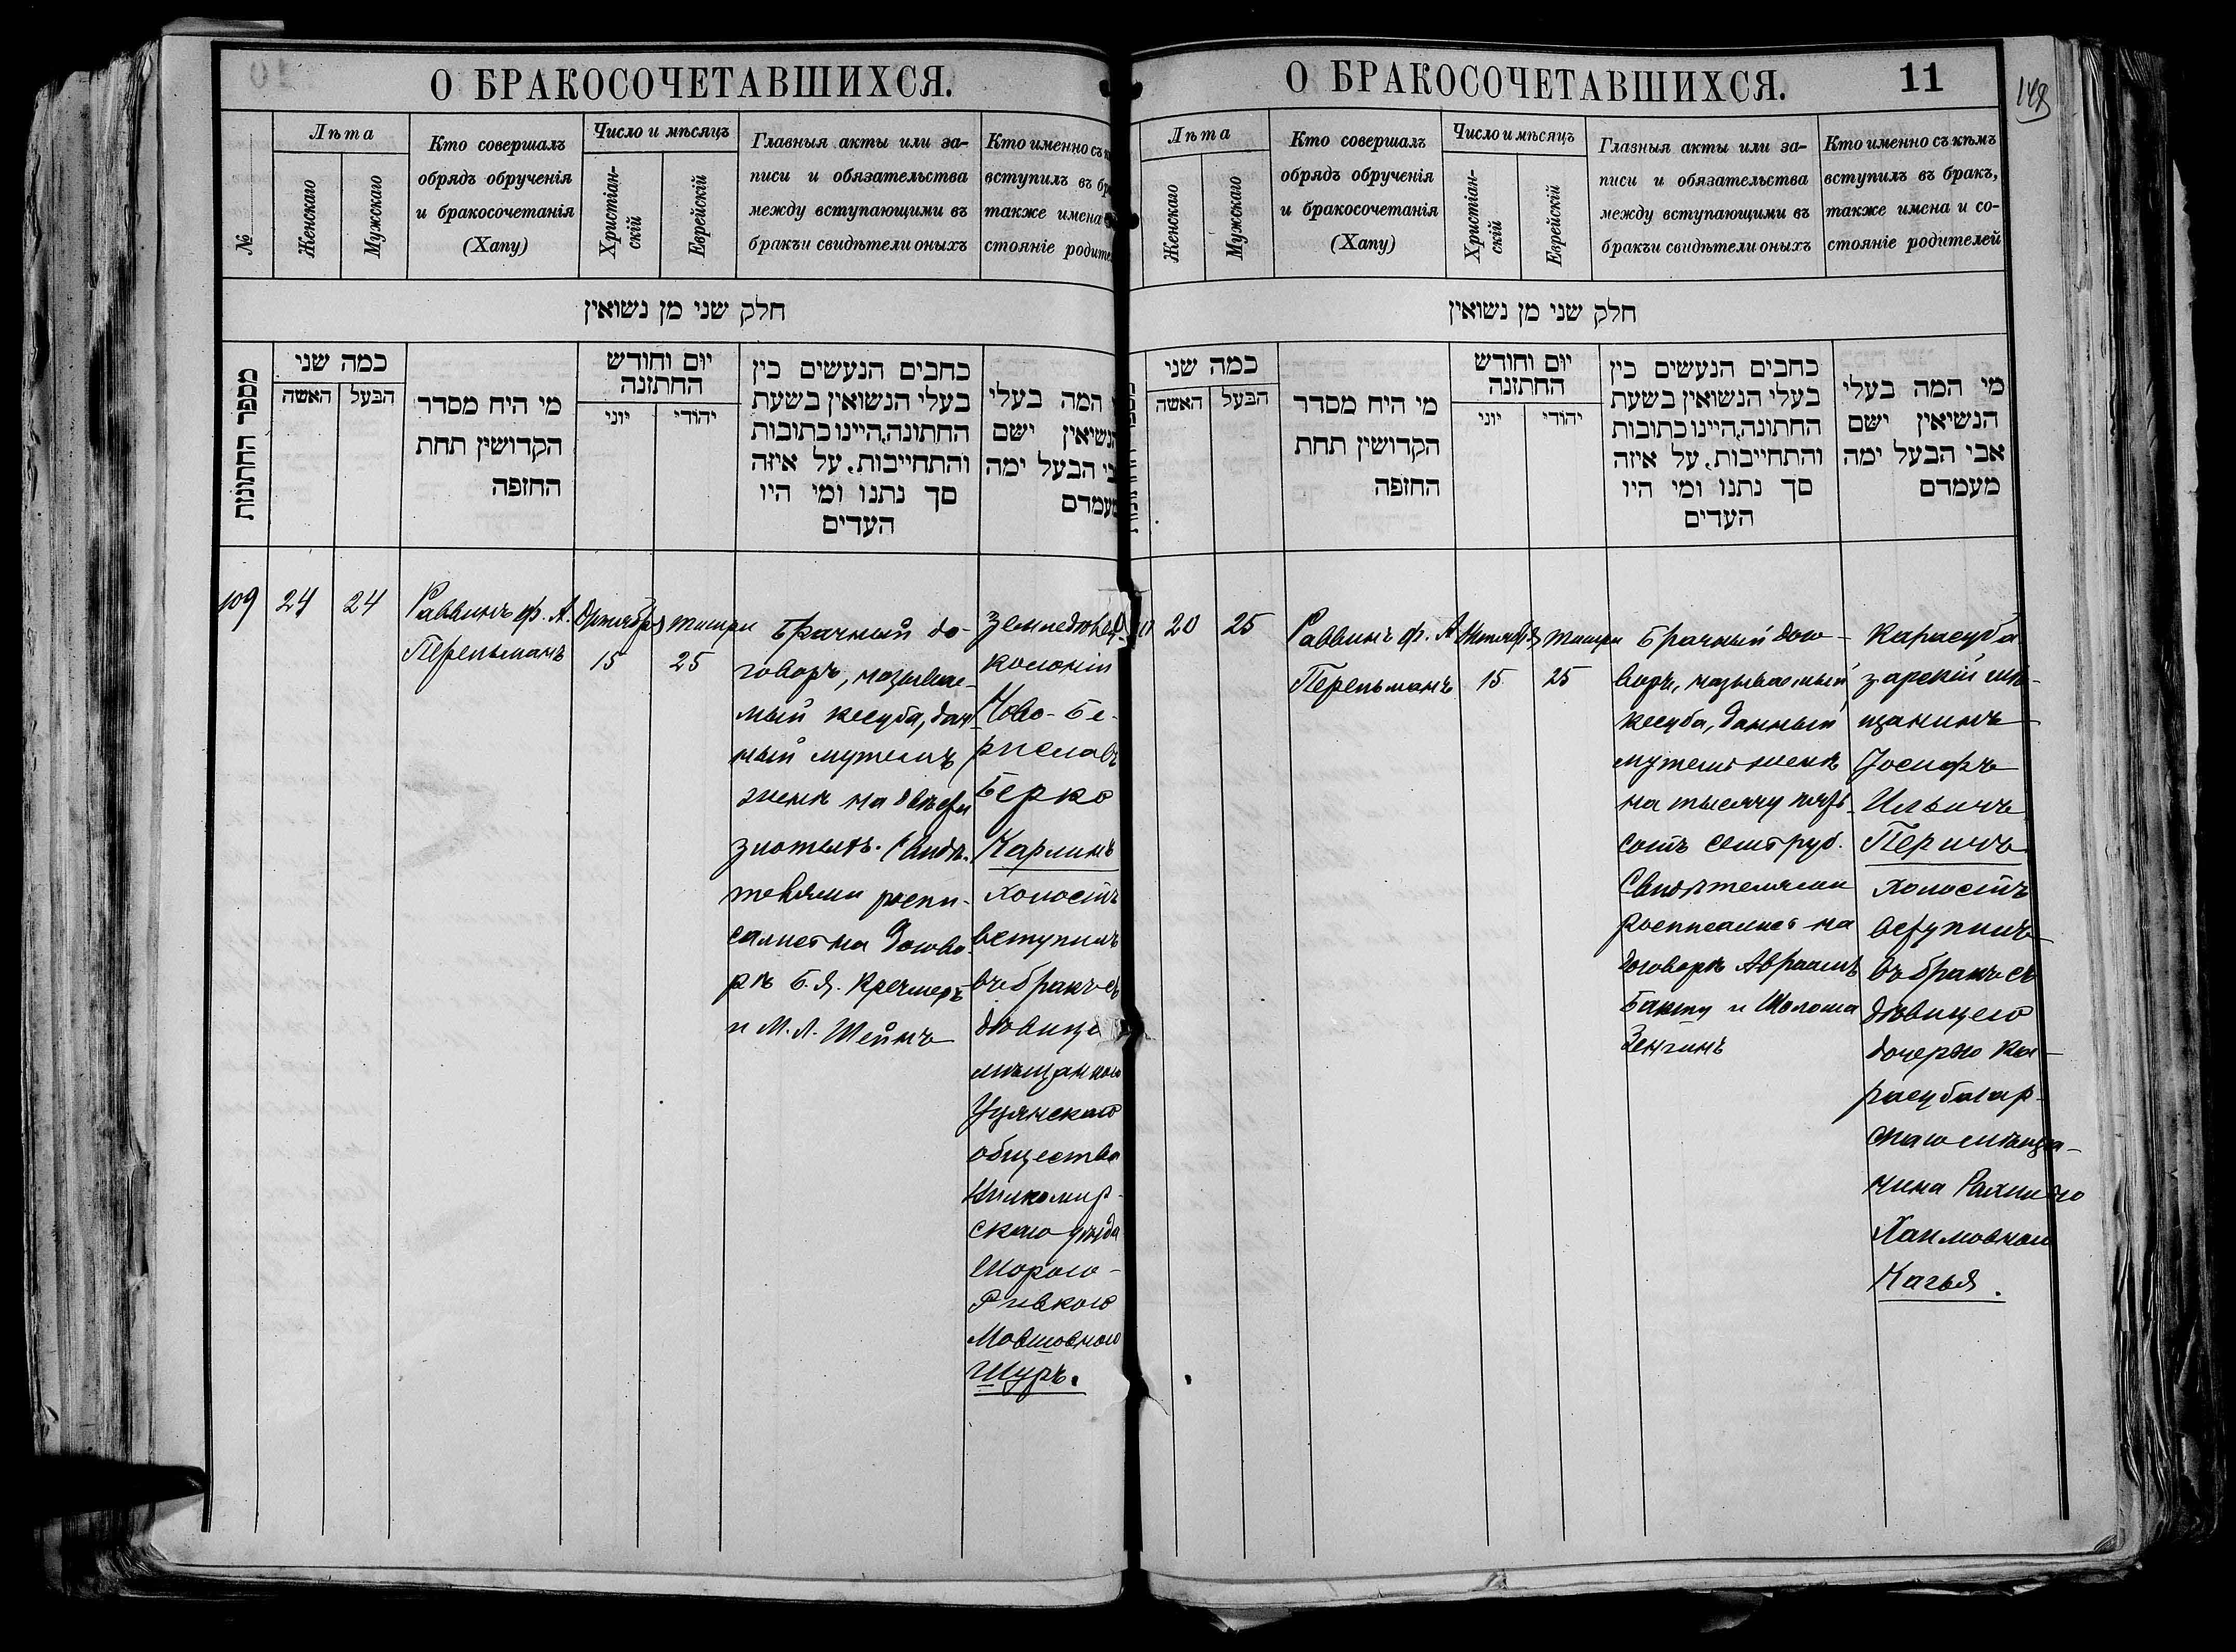 О БРАКОСОЧЕТАВШИХСЯ.
№
Лѣта
Женскаго
Мужскаго
Кто совершалъ
обрядъ обрученія
и бракосочетанія
(Хапу)
Число и мѣсяцъ
Христіан-
скій
Еврейскій
Главныя акты или за-
писи и обязательства
между вступающими въ
бракъи свидѣтели оныхъ
Кто именно съ
вступилъ въ бр
также имена
стояніе родите
חלק שני מן נשואין
מספר החתונות
כמה שני
האשה
הבעל
מי היח מסדר
הקדושין תחת
החזפה
יום וחודש
החתזנה
יוני
יהודי
כחבים הנעשים כין
בעלי הנשואין בשעת
החתונה,היינו כתובות
והתחייבות, על איזה
סך נתנו ומי היו
העדים
המה בעלי
הנשיאין ישם
בי הבעל ימה
מעמדם
109
24
24
Раввинъ ф. А.
Перельманъ
Октября
15
Тишри
25
Брачный до-
говоръ, называе-
мый кесуба, дан
ный мужемъ
женѣ на двѣсти
злотыхъ. Свидѣ-
телями роспи-
сались на догово-
рѣ Б. Я. Кречмеръ
и М. Л. Шейнъ
Земледѣлецъ
колоніи
Ново-Бе-
риславъ
Берко
Карлинъ
холостъ
вступилъ
въ бракъ съ
дѣвице
мѣщанкою
Уцянскаго
общества
Вилкомир-
скаго уѣзда
Шорою-
Ривкою
Мовшовною
Шуръ.
О БРАКОСОЧЕТАВШИХСЯ.
11
148
Лѣта
Женскаго
Мужскаго
Кто совершалъ
обрядъ обрученія
и бракосочетанія
(Хапу)
Число и мѣсяцъ
Христіан-
скій
Еврейскій
Главныя акты или за-
писи и обязательства
между вступающими въ
бракъи свидѣтели оныхъ
Кто именно съ кѣмъ
вступилъ въ бракъ,
также имена и со-
стояніе родителей
חלק שני מן נשואין
כמה שני
האשה
הבעל
מי היח מסדר
הקדושין תחת
החזפה
יום וחודש
החתזנה
יוני
יהודי
כחבים הנעשים כין
בעלי הנשואין בשעת
החתונה,היינו כתובות
והתחייבות, על איזה
סך נתנו ומי היו
העדים
מי המה בעלי
הנשיאין ישם
אבי הבעל ימה
מעמדם
20
25
Раввинъ ф. А
Перельманъ
Октября
15
Тишри
25
Брачный дого-
воръ, называемый
кесуба, данный
мужемъ женѣ
на тысячу пять
сотъ семь руб.
Свидѣтелями
росписались на
договорѣ Авраамъ
Бакшу и Шолома
Зенгинъ
Карасуба
зарскій мѣ-
щанинъ
Іосифъ
Ильичъ
Перичъ
холостъ
вступилъ
въ бракъ съ
дѣвицею
дочерью Ка-
расубазар-
скаго мѣща-
нина Рахилью
Хаимовною
Кагья.